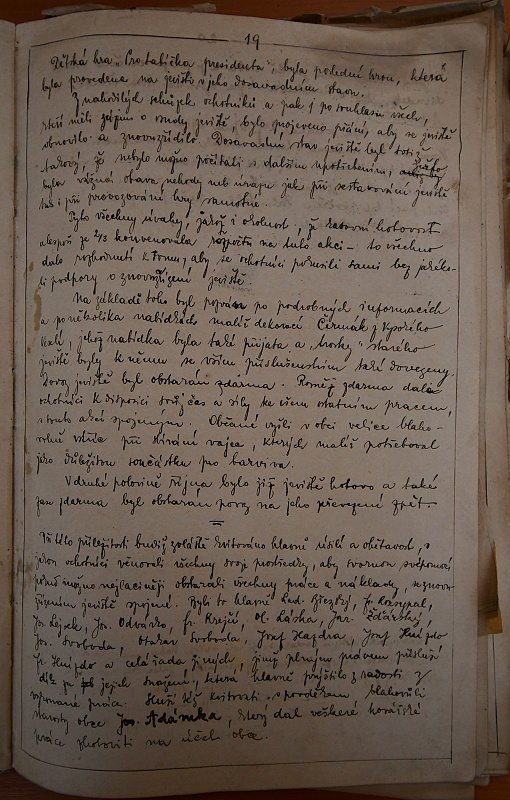 19
Dětská hra „Pro tatíčka presidenta", byla poslední hrou, která
byla provedena na jevišti v jeho dosavadním stavu.
Z nahodilých schůzek ochotníků a pak i po souhlasu všech,
kteří měli zájem o osudy jeviště, bylo projeveno přání, aby se jeviště
obnovilo a znovuzřídilo. Dosavadní stav jeviště byl totiž
takový, že nebylo možno počítati s dalším upotřebením,
byla vážná obava nehody neb úrazu jak při sestavování jeviště
tak i při provozování hry samotné.
Tyto všechny úvahy, jakož i okolnost, že hotovost
alespoň ze 2/3 konvenovala rozpočtu na tuto akci – to všechno
dalo rozhodnutí k tomu, aby se ochotníci pokusili sami bez jaké-
li podpory o znovuzřízení jeviště.
Na základě toho byl pozván po podrobných informacích
a po několika nabídkách malíř dekorací Čermák z Vysokého
jehož nabídka byla také přijata a starého
jeviště byly k němu se vším příslušenstvím také dovezeny.
Dovoz jeviště byl obstarán zdarma. Rovněž zdarma dali
ochotníci k disposici svůj čas a síly ke všem ostatním pracem,
s touto akcí spojeným. Občané v obci velice blaho-
volně při sbírání vajec, kterých malíř potřeboval
jako důležitou součástku pro barviva.
V druhé polovině října bylo již jeviště hotovo a také
zase zdarma byl obstarán povoz na jeho přivezení zpět.
Při této příležitosti budiž zvláště kvitováno hlavně úsilí a obětavost, s
jakou ochotníci věnovali všechny svoje prostředky, aby svornou svépomocí
pokud možno nejlaciněji obstarali všechny práce a náklady, se znovu-
zřízením jeviště spojené. Byli to hlavně Lud. Březský, Fr.
Jos. Jos. Odvárko, Fr. Krejčí, Ol. Láska, Jar. Žďárský,
Jos. Svoboda, Otakar Svoboda, Josef Hajdra, Josef Hnízdo
Fr. Hnízdo a celá řada jiných, jimž plným právem přísluší
dík za jejich snažení, která hlavně z radosti z
práce. Sluší též kvitovati s povděkem
starosty obce Jos. Adámka, který dal veškeré kovářské
práce zhotoviti na účet obce.